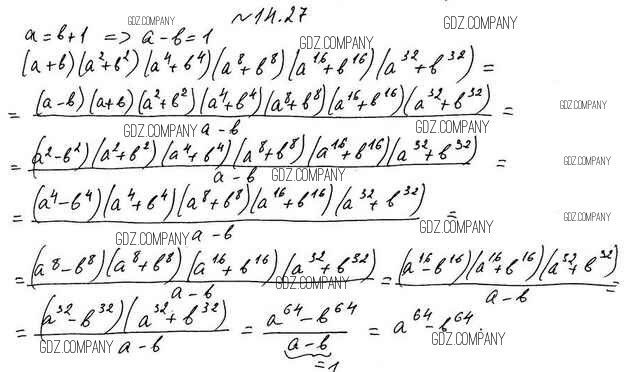 №14.27
a = b+1 => a-b = 1
(a+b)(a²+b²)(a⁴+b⁴)(a⁸+b⁸)(a¹⁶+b¹⁶)(a³²+b³²) =
= (a-b)(a+b)(a²+b²)(a⁴+b⁴)(a⁸+b⁸)(a¹⁶+b¹⁶)(a³²+b³²) / a-b =
= (a²-b²)(a²+b²)(a⁴+b⁴)(a⁸+b⁸)(a¹⁶+b¹⁶)(a³²+b³²) / a-b =
= (a⁴-b⁴)(a⁴+b⁴)(a⁸+b⁸)(a¹⁶+b¹⁶)(a³²+b³²) / a-b =
= (a⁸-b⁸)(a⁸+b⁸)(a¹⁶+b¹⁶)(a³²+b³²) / a-b = (a¹⁶-b¹⁶)(a¹⁶+b¹⁶)(a³²+b³²) / a-b =
= (a³²-b³²)(a³²+b³²) / a-b = a⁶⁴-b⁶⁴ / a-b = a⁶⁴-b⁶⁴.
=1
GDZ.COMPANY
GDZ.COMPANY
GDZ.COMPANY
GDZ.COMPANY
GDZ.COMPANY
GDZ.COMPANY
GDZ.COMPANY
GDZ.COMPANY
GDZ.COMPANY
GDZ.COMPANY
GDZ.COMPANY
GDZ.COMPANY
GDZ.COMPANY
GDZ.COMPANY